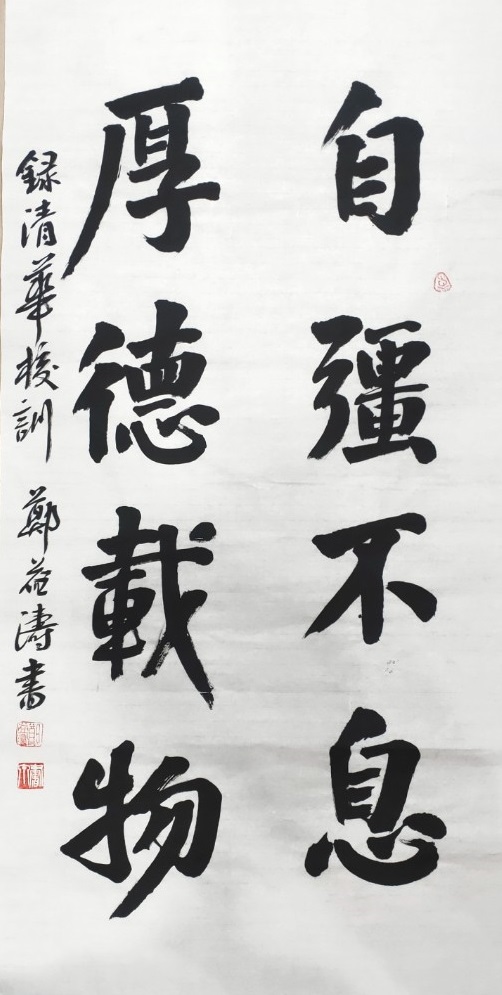 自彊不息
厚德載物
錄清華校訓 鄭益濤書